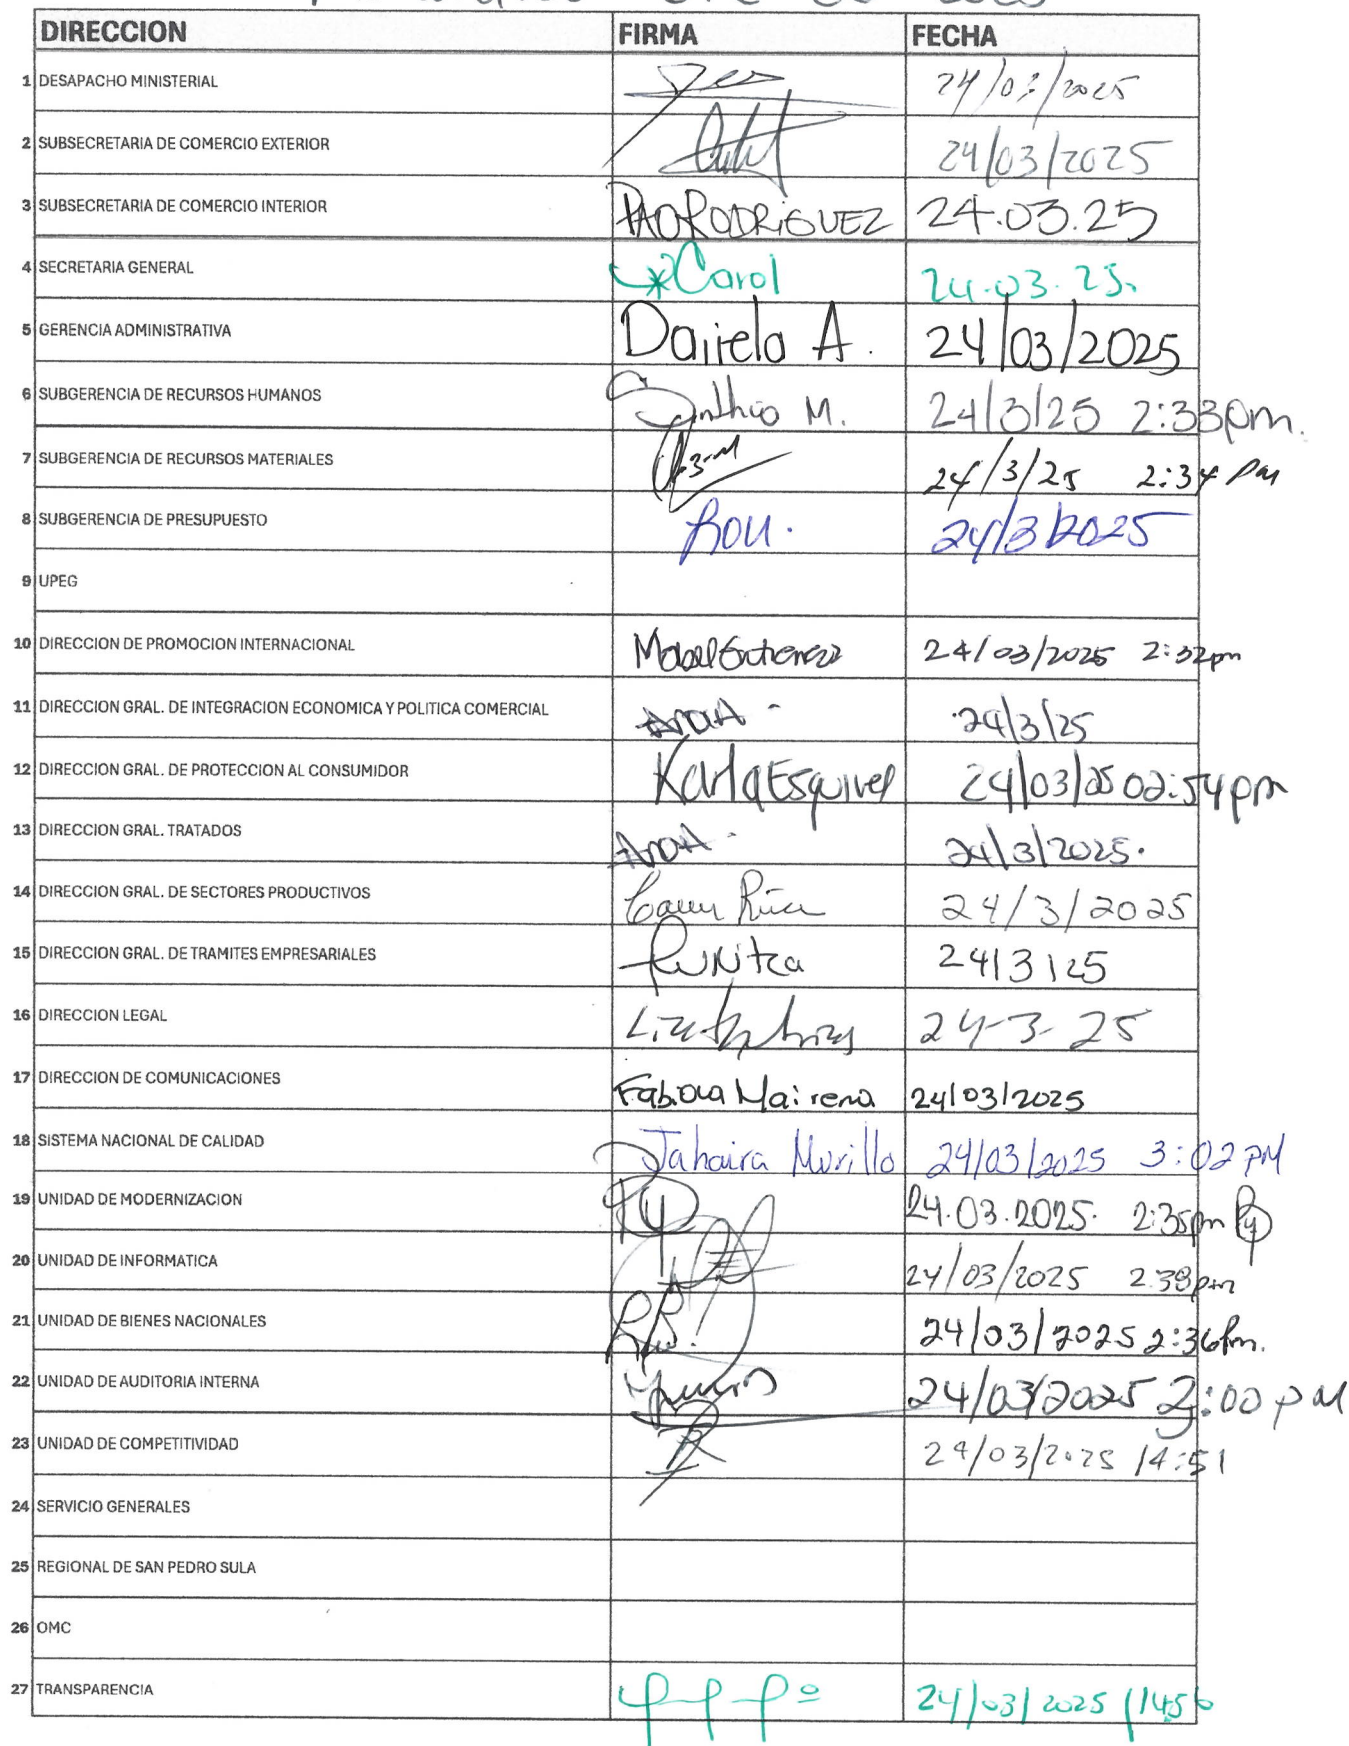 DIRECCION FIRMA FECHA
1 DESAPACHO MINISTERIAL 24/03/2025
2 SUBSECRETARIA DE COMERCIO EXTERIOR 24/03/2025
3 SUBSECRETARIA DE COMERCIO INTERIOR PAO RODRIGUEZ 24.03.25
4 SECRETARIA GENERAL Carol 24.03.25.
5 GERENCIA ADMINISTRATIVA A. 24/03/2025
6 SUBGERENCIA DE RECURSOS HUMANOS M. 24/3/25 2:33pm.
7 SUBGERENCIA DE RECURSOS MATERIALES 24/3/25 2:34 pm
8 SUBGERENCIA DE PRESUPUESTO 24/3/2025
9 UPEG
10 DIRECCION DE PROMOCION INTERNACIONAL 24/03/2025 2:32pm
11 DIRECCION GRAL. DE INTEGRACION ECONOMICA Y POLITICA COMERCIAL 24/3/25
12 DIRECCION GRAL. DE PROTECCION AL CONSUMIDOR Karla Esquivel 24/03/25 02:54pm
13 DIRECCION GRAL. TRATADOS 24/3/2025.
14 DIRECCION GRAL. DE SECTORES PRODUCTIVOS 24/3/2025
15 DIRECCION GRAL. DE TRAMITES EMPRESARIALES 24/3/25
16 DIRECCION LEGAL 24-3-25
17 DIRECCION DE COMUNICACIONES Fabiola Mairena 24/03/2025
18 SISTEMA NACIONAL DE CALIDAD Jahaira Murillo 24/03/2025 3:02 PM
19 UNIDAD DE MODERNIZACION 24.03.2025. 2:35pm
20 UNIDAD DE INFORMATICA 24/03/2025 2:38pm
21 UNIDAD DE BIENES NACIONALES 24/03/2025 2:36pm.
22 UNIDAD DE AUDITORIA INTERNA 24/03/2025 :00 PM
23 UNIDAD DE COMPETITIVIDAD 24/03/2025 14:51
24 SERVICIO GENERALES
25 REGIONAL DE SAN PEDRO SULA
26 OMC
27 TRANSPARENCIA 24/03/2025 (14:56